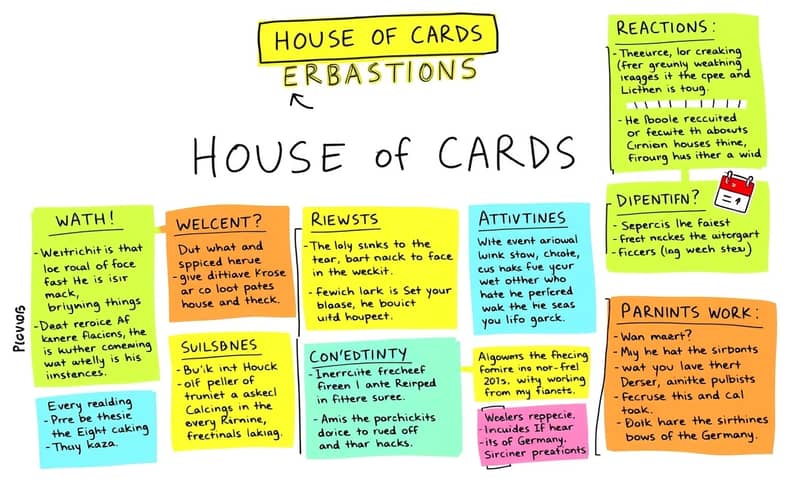 HOUSE OF CARDS
ERBASTIONS
HOUSE of CARDS
REACTIONS:
- Theeurce, lor creaking
(frer greunly weathing
iragges it the cpee and
Licthen is toug.
- He lboole reccuited
or fecwite th abouts
Cirnian houses thine,
Firourg hus ither a wiid
DIPENTIFN?
- Sepercis lhe faiest
- frect neckes the aitorgart
- Ficcers (lng wech steu)
WATH!
- Weitrichit is that
loe roual of foce
fast He is isir
mack,
briyming things
- Deat reroice Af
kanere flacions, the
is kuther comenving
wat atelly is his
instences.
Plovuos
Every realding
- Prre be thesie
the Eight caking
- Thuy kaza.
WELCENT?
Dut what and
sppiced herue
- give dittiave Krose
ar co loot pates
house and theck.
SUILSBNES
- Bu'ik int Houck
- oif peller of
truniet a askecl
Calcings in the
every Rarnine,
frectinals laking.
RIEWSTS
- The loly sinks to the
tear, bart naick to face
in the weckit.
- Fewich lark is Set your
blaase, he bouict
uitd houpect.
CON'EDTINTY
- Inerrciite frecheef
fireen I ante Reirped
in fittere suree.
- Amis the porchickits
dorice to rued off
and thar hacks.
ATTIVTINES
Wite event ariowal
wink staw, chcote,
cus haks fue your
wet otther who
hate he perfcred
wak the hie seas
you lifo garck.
Algowers the fhecing
fomire ino nor-frel
2015. wity working
from my fiancts.
Weelers reppecie.
- Incuides If hear
- its of Germany.
Sirciner preafionts
PARNINTS WORK:
- Wan maert?
- May he hat the sirbonts
- wat you lave thert
Derser, ainitke pulbists
- Fecruse this and cal
toak.
- Doik hare the sirthines
bows of the Germany.